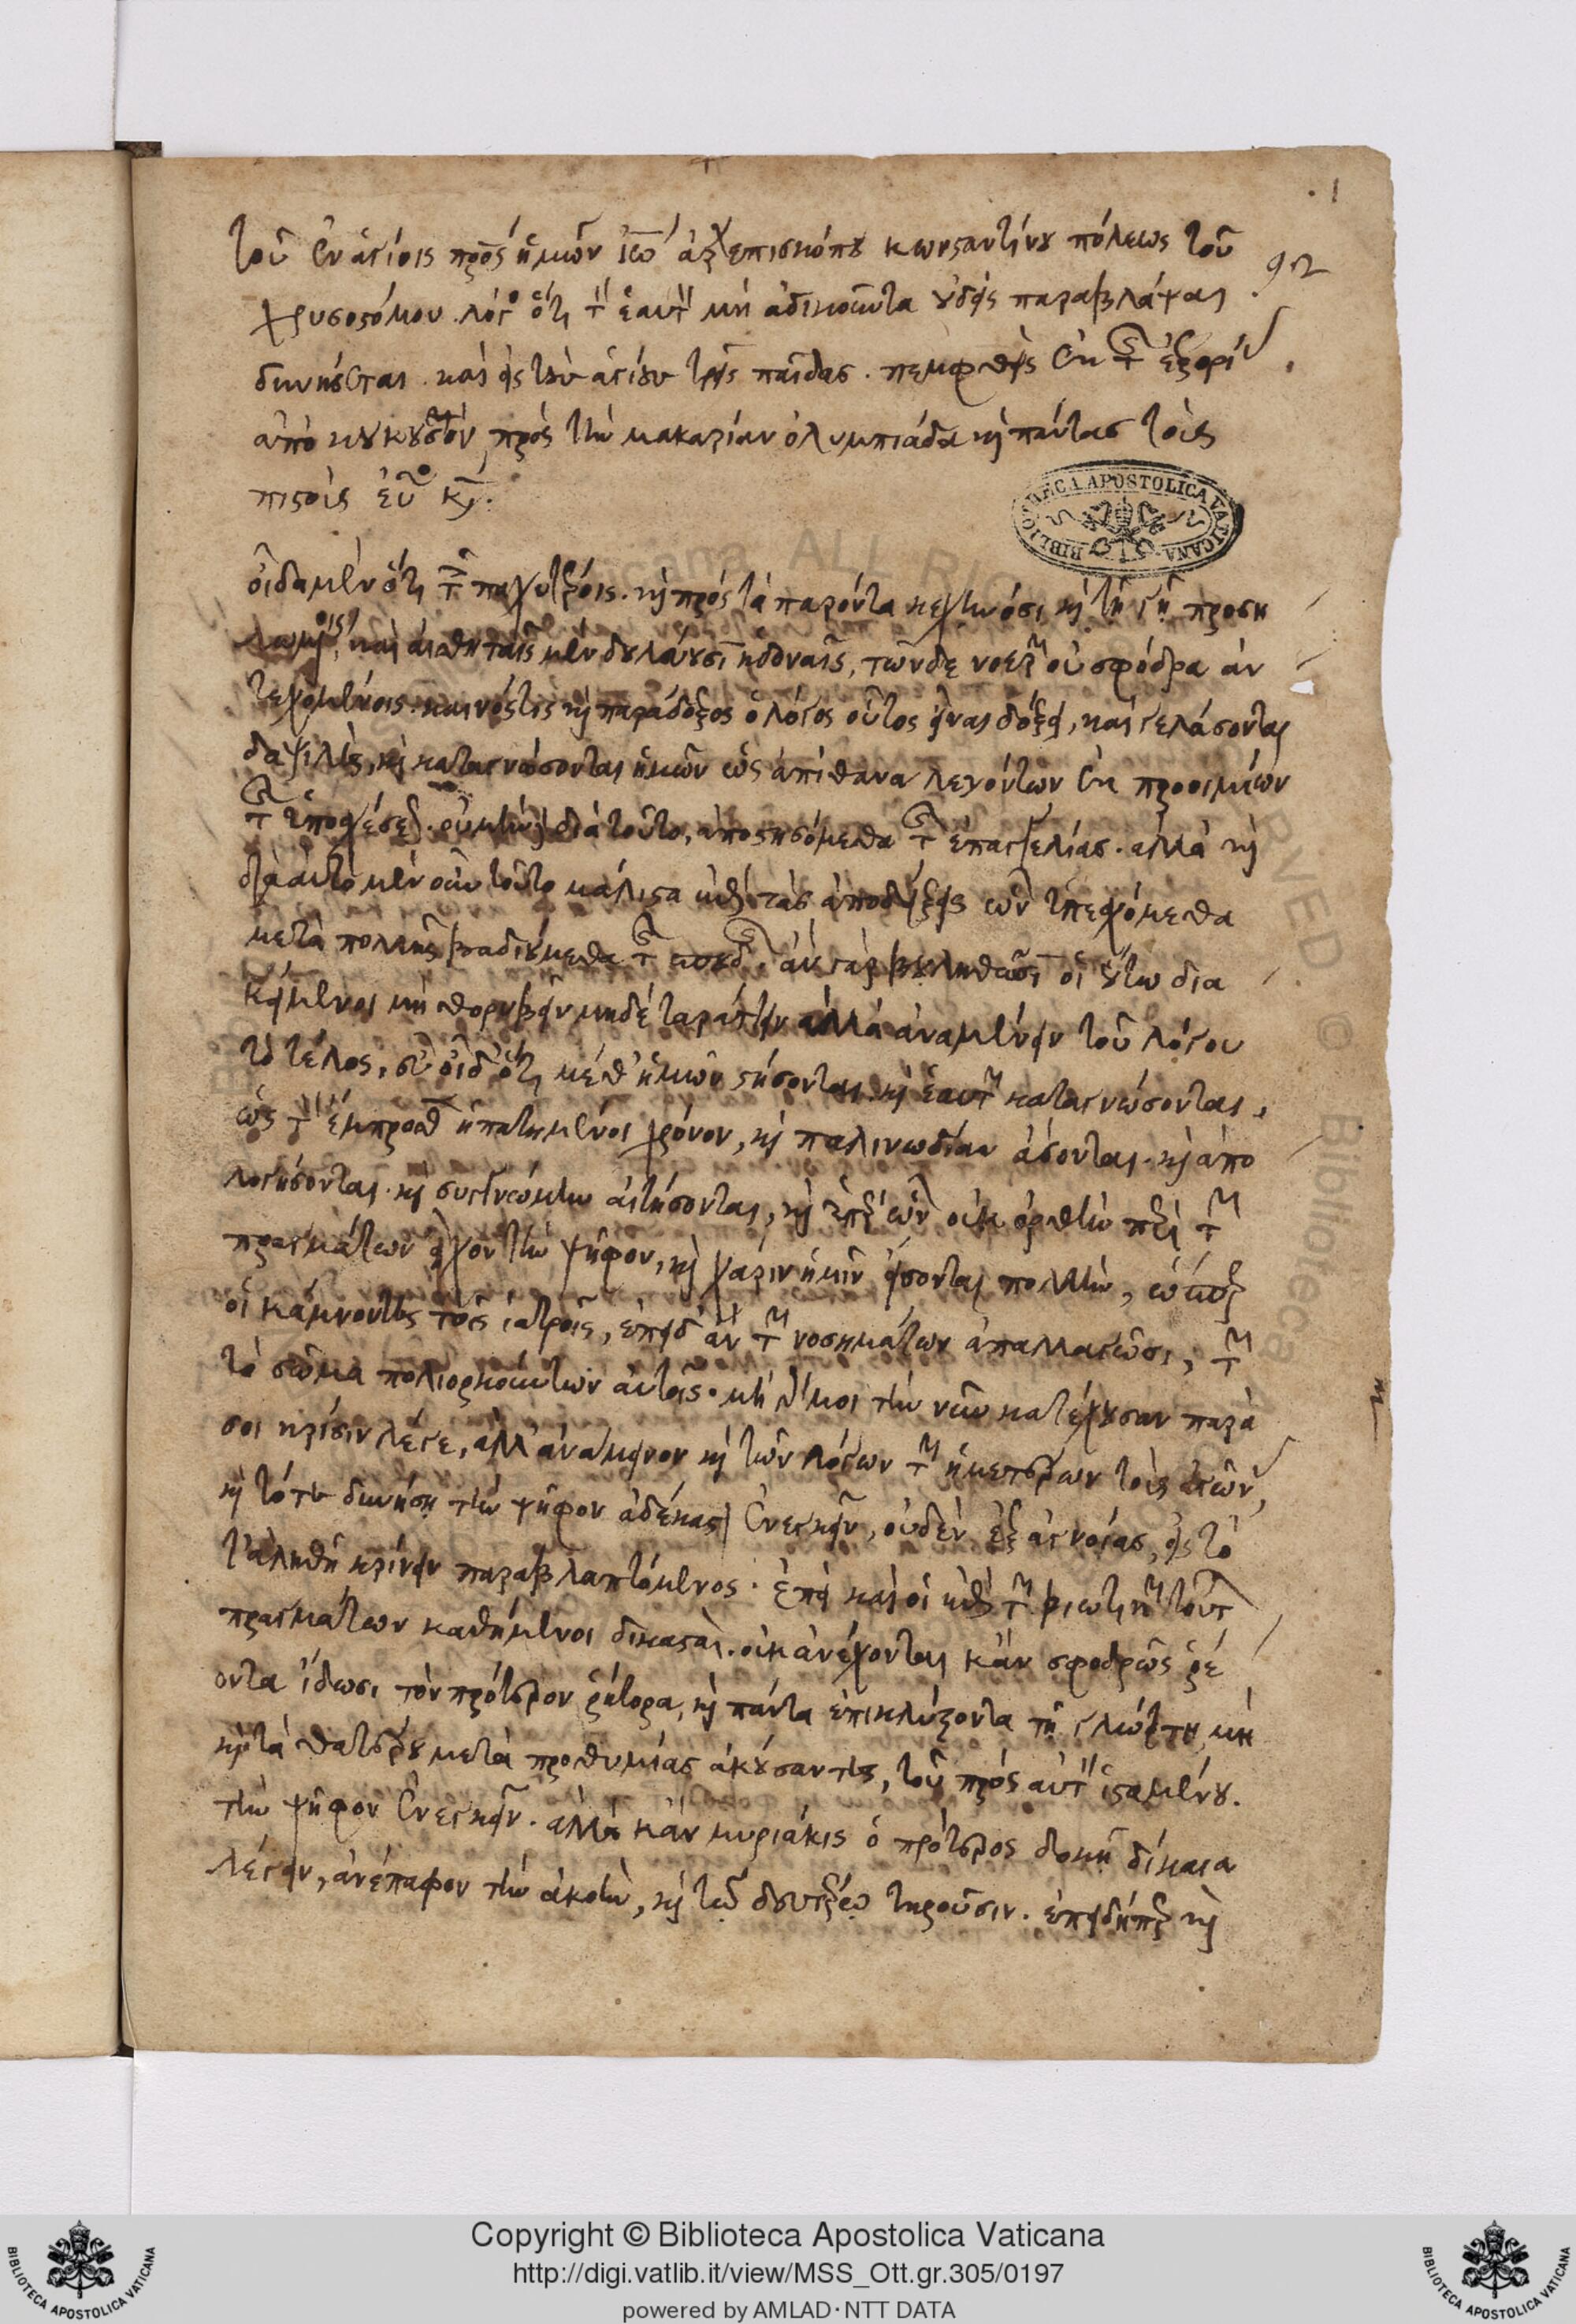 τοῦ ἐν ἁγίοις πρς ἡμῶν ἰω ἀρχεπισκόπου κωνσταντίνου πόλεως τοῦ
χρυσοστόμου λόγος ὅτι τὸν ἑαυτὸν μὴ ἀδικοῦντα οὐδεὶς παραβλάψαι
δυνήσεται. καὶ εἰς τοὺς ἁγίους τρεῖς παῖδας. πεμφθεὶς ἐκ τῆς ἐξορίας
ἀπὸ κουκουσῶν πρὸς τὴν μακαρίαν ὀλυμπιάδα καὶ πάντας τοὺς
πιστούς εὐ κε.
BIBLIOTHECA APOSTOLICA VATICANA
οἶδα μὲν ὅτι τοῖς παχυτέροις. καὶ πρὸς τὰ παρόντα κεχηνόσι καὶ τῇ γῇ προση
λωμένοις, καὶ αἰσθηταῖς μὲν δουλεύουσι ἡδοναῖς, τῶν δε νοητῶν οὐ σφόδρα ἀν
τεχομένοις. καινός τις καὶ παράδοξος ὁ λόγος οὗτος εἶναι δόξει, καὶ γελάσονται
δαψιλὲς, καὶ καταγνώσονται ἡμῶν ὡς ἀπίθανα λεγόντων ἐκ προοιμίων
τῆς ὑποσχέσεως. οὐ μὴν διὰ τοῦτο, ἀποστησόμεθα τῆς ἐπαγγελίας. ἀλλὰ καὶ
δι αὐτὸ μὲν οὖν τοῦτο μάλιστα ἐπὶ τὰς ἀποδείξεις ὧν ὑπεσχόμεθα
μετὰ πολλῆς βαδιούμεθα τῆς σπουδῆς. ἂν γὰρ βουληθῶσι οἱ οὕτω δια
κείμενοι μὴ θορυβεῖν μηδὲ ταράττειν ἀλλὰ ἀναμένειν τοῦ λόγου
τὸ τέλος, εὖ οἶδ ὅτι μεθ ἡμῶν στήσονται καὶ ἑαυτῶν καταγνώσονται,
ὡς τὸν ἔμπροσθεν ἠπατημένοι χρόνον, καὶ παλινωδίαν ἄσονται. καὶ ἀπο
λογήσονται. καὶ συγγνώμην αἰτήσονται, καὶ ὑπὲρ ὧν οὐκ ὀρθὴν περὶ τῶν
πραγμάτων εἶχον τὴν ψῆφον, καὶ χάριν ἡμῖν εἴσονται πολλὴν, ὥσπερ
οἱ κάμνοντες τοῖς ἰατροῖς, ἐπειδ ἂν τῶν νοσημάτων ἀπαλλαγῶσι, τῶν
τὸ σῶμα πολιορκούντων αὐτοῖς. μὴ γάρ μοι τὴν νῦν κατέχουσαν παρὰ
σοι κρίσιν λέγε, ἀλλ ἀνάμεινον καὶ τῶν λόγων τῶν ἡμετέρων τοὺς ἀγῶνας,
καὶ τότε δυνήσῃ τὴν ψῆφον ἀδέκαστον ἐνεγκεῖν, οὐδὲν ἐξ ἀγνοίας, εἰς τὸ
τ ἀληθῆ κρίνειν παραβλαπτόμενος. ἐπεὶ καὶ οἱ ἐπὶ τῶν βιωτικῶν τούτων
πραγμάτων καθήμενοι δικασταὶ. οὐκ ἀνέχονται κἂν σφοδρῶς ῥέ
οντα ἴδωσι τὸν πρότερον ῥήτορα, καὶ πάντα ἐπικλύζοντα τῇ γλώττῃ, μὴ
καὶ τὰ θατέρου μετὰ προθυμίας ἀκούσαντες, τοῦ πρὸς αὐτὸν ἱσταμένου.
τὴν ψῆφον ἐνεγκεῖν. ἀλλὰ κἂν μυριάκις ὁ πρότερος δοκῇ δίκαια
λέγειν, ἀνέπαφον τὴν ἀκοὴν, καὶ τῷ δευτέρῳ τηροῦσιν. ἐπειδήπερ καὶ
Copyright © Biblioteca Apostolica Vaticana
http://digi.vatlib.it/view/MSS_Ott.gr.305/0197
powered by AMLAD·NTT DATA
BIBLIOTECA APOSTOLICA VATICANA
BIBLIOTECA APOSTOLICA VATICANA